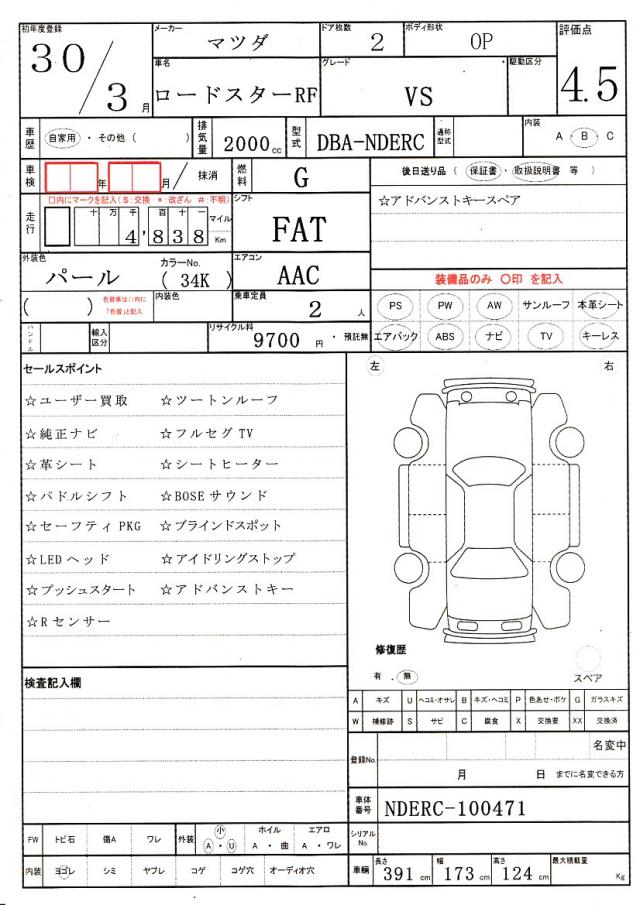 初年度登録 30/3月
メーカー マツダ
ドア枚数 2
ボディ形状 OP
評価点 4.5
車名 ロードスターRF
グレード VS
駆動区分
車歴 自家用・その他( )
排気量 2000cc
型式 DBA-NDERC
通称型式
内装 A・B・C
車検 年 月/ 抹消
燃料 G
後日送り品(保証書・取扱説明書 等)
☆アドバンストキースペア
走行
□内にマークを記入(S:交換 *:改ざん #:不明)
十万千百十一
4,838 マイル Km
シフト FAT
外装色 パール
カラーNo. (34K)
エアコン AAC
装備品のみ 〇印 を記入
( ) 色替車は( )内に「色替」と記入
内装色
乗車定員 2人
PS PW AW サンルーフ 本革シート
ハンドル
輸入区分
リサイクル料 9700円・預託無
エアバック ABS ナビ TV キーレス
セールスポイント
左 右
☆ユーザー買取 ☆ツートンルーフ
☆純正ナビ ☆フルセグTV
☆革シート ☆シートヒーター
☆パドルシフト ☆BOSEサウンド
☆セーフティPKG ☆ブラインドスポット
☆LEDヘッド ☆アイドリングストップ
☆プッシュスタート ☆アドバンストキー
☆Rセンサー
修復歴
有・無
スペア
検査記入欄
A キズ U ヘコミ・オサレ B キズ・ヘコミ P 色あせ・ボケ G ガラスキズ
W 補修跡 S サビ C 腐食 X 交換要 XX 交換済
登録No. 名変中
月 日 までに名変できる方
車体番号 NDERC-100471
シリアルNo.
FW トビ石 傷A ワレ 外装 小 A・U ホイル A・曲 エアロ A・ワレ
内装 ヨゴレ シミ ヤブレ コゲ コゲ穴 オーディオ穴
車輌 長さ 391cm 幅 173cm 高さ 124cm 最大積載量 Kg